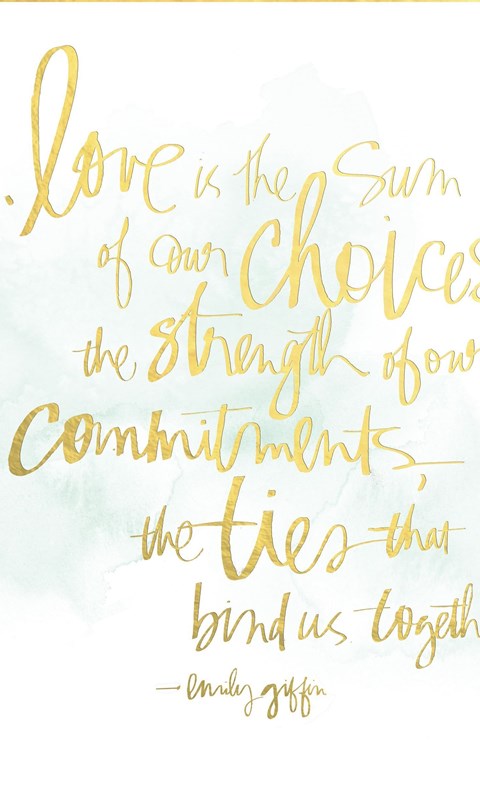 love is the sum
of our choices
the strength of our
commitments,
the ties that
bind us togeth
— emily giffin